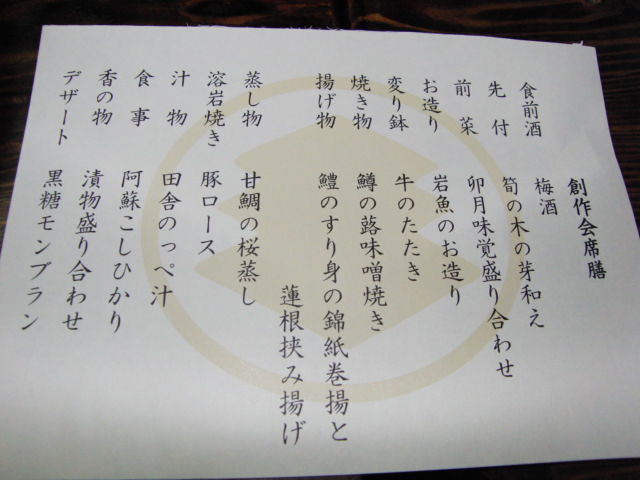 創作会席膳
食前酒 梅酒
先付 筍の木の芽和え
前菜 卯月味覚盛り合わせ
お造り 岩魚のお造り
変り鉢 牛のたたき
焼き物 鱒の蕗味噌焼き
揚げ物 鱧のすり身の錦紙巻揚と
蓮根挟み揚げ
蒸し物 甘鯛の桜蒸し
溶岩焼き 豚ロース
汁物 田舎のっぺ汁
食事 阿蘇こしひかり
香の物 漬物盛り合わせ
デザート 黒糖モンブラン